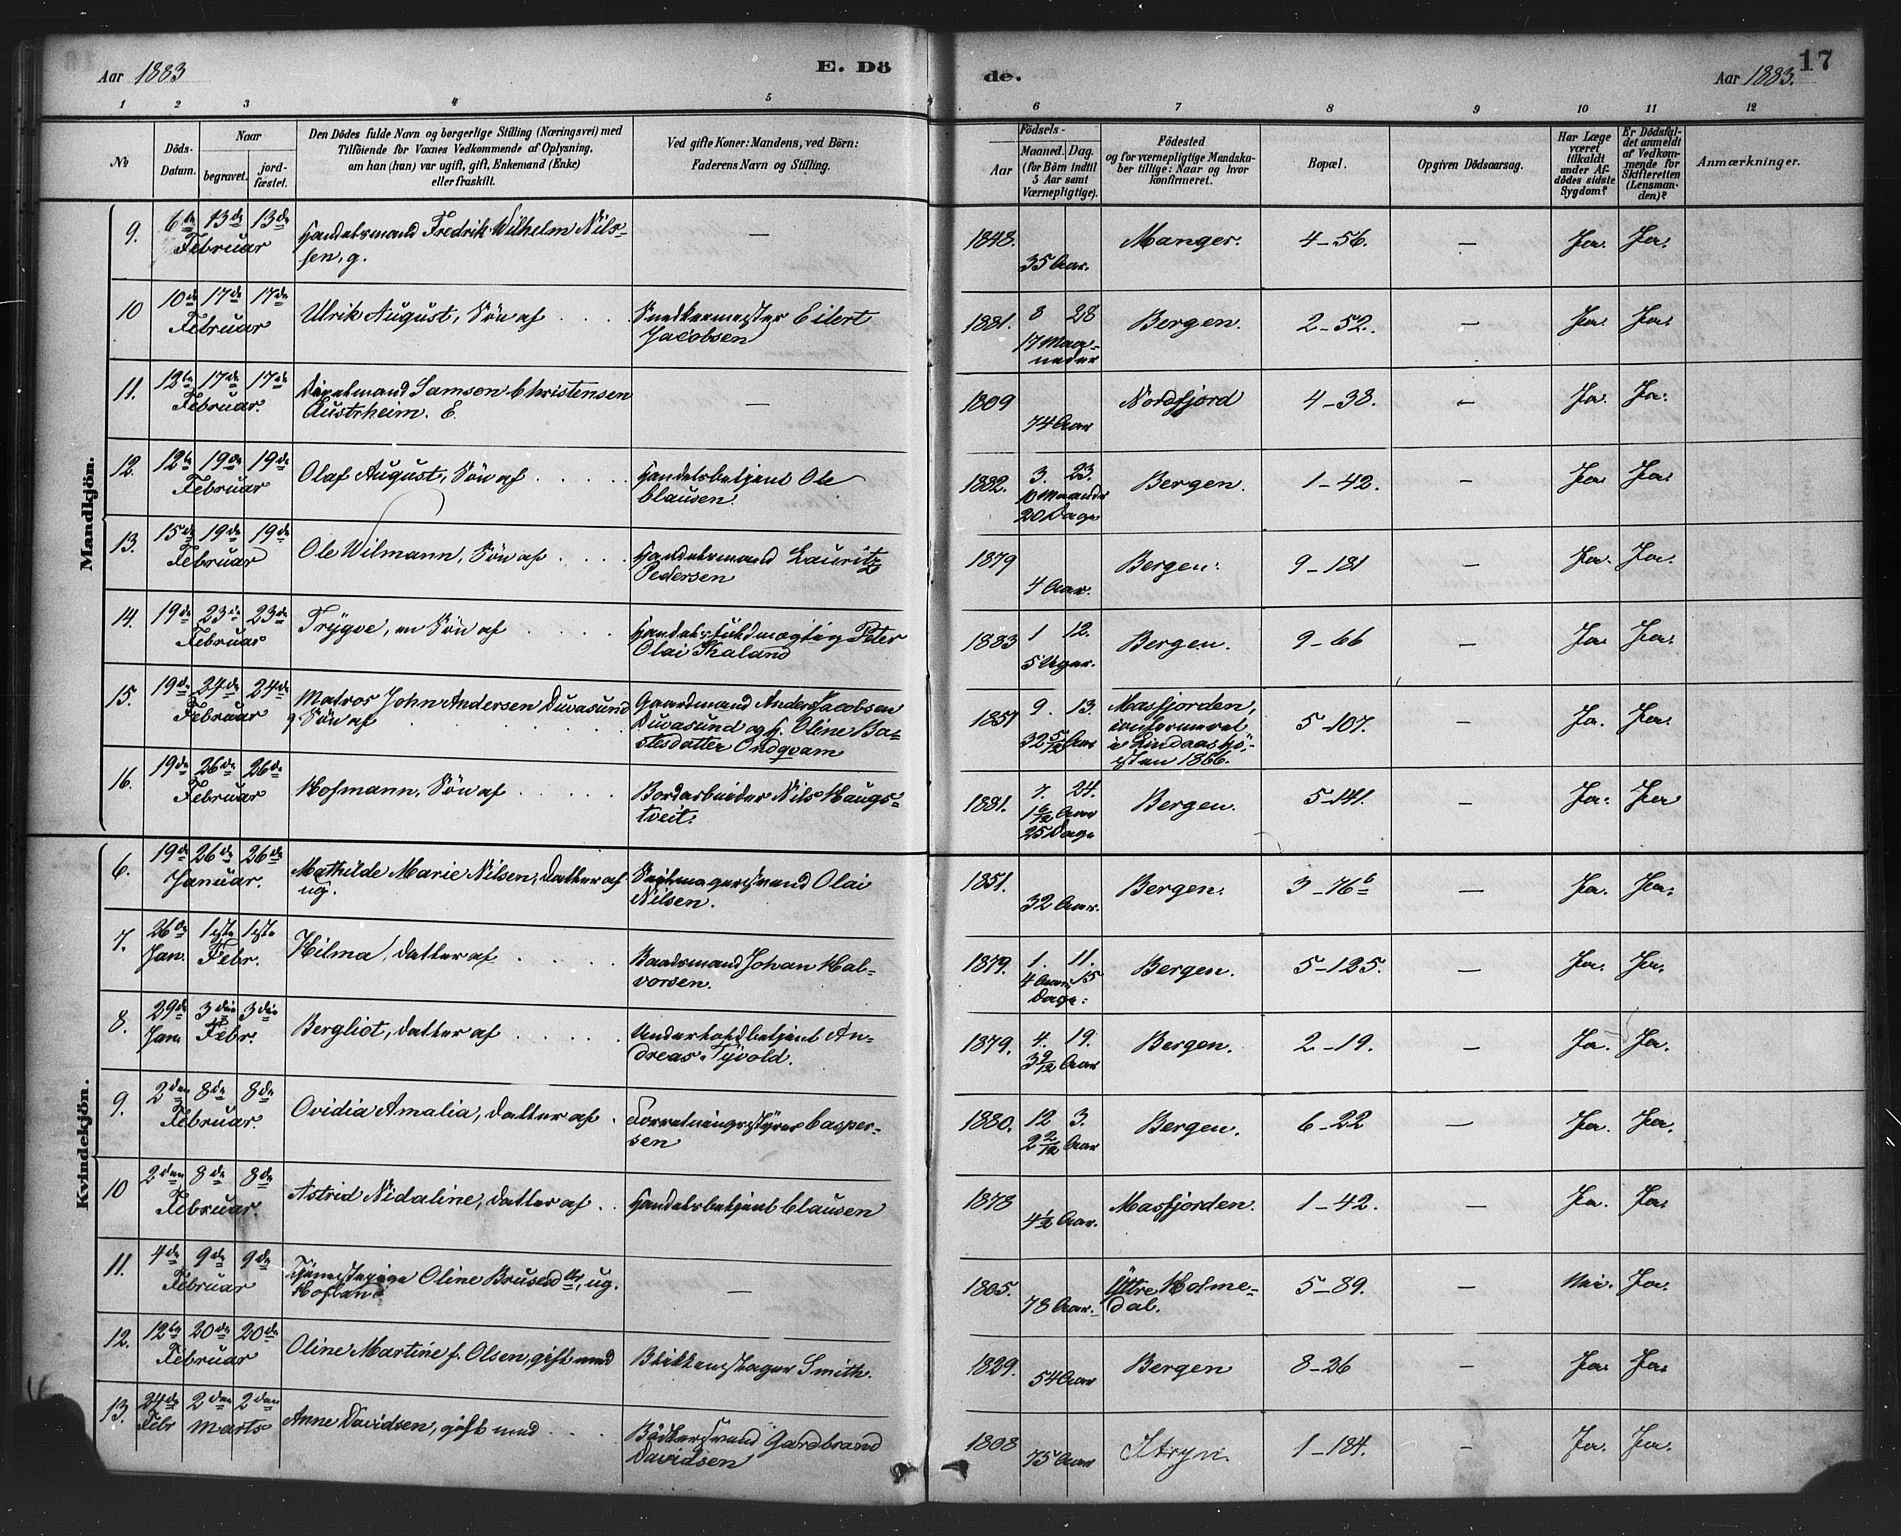 Aar 1883
E. Dö
de.
17
Aar 1883.
1 2 3 4 5 6 7 8 9 10 11 12
No
Döds-
Datum.
Naar
begravet.
jord-
fæstet.
Den Dödes fulde Navn og borgerlige Stilling (Næringsvei) med
Tilföiende for Voxnes Vedkommende af Oplysning,
om han (hun) var ugift, gift, Enkemand (Enke)
eller fraskilt.
Ved gifte Koner: Mandens, ved Börn:
Faderens Navn og Stilling.
Födsels-
Aar
Maaned. Dag.
(for Börn indtil
5 Aar samt
Værnepligtige).
Födested
og for værnepligtige Mandska-
ber tillige: Naar og hvor
konfirmeret.
Bopæl.
Opgiven Dödsaarsag.
Har Læge
været
tilkaldt
under Af-
dödes sidste
Sygdom?
Er Dödsfal-
det anmeldt
af Vedkom-
mende for
Skifteretten
(Lensman-
den)?
Anmærkninger.
Mandkjön.
9. 6te 13de 13de Februar Handelsmand Fredrik Wilhelm Nils-
sen, g. — 1848. 35 Aar. Manger. 4-56. — Ja. Ja.
10 10de 17de 17de Februar Ulrik August, Sön af Snedkermester Eilert
Jacobsen 1881. 8 28 17 Maa-
neder Bergen. 2-52. — Ja. Ja.
11. 12te 17de 17de Februar. Samson Christensen
Austrheim. E. — 1809 74 Aar Nordfjord 4-38. — Ja. Ja.
12. 12te 19de 19de Februar Olaf August, Sön af Handelsbetjent Ole
Clausen. 1882. 3. 23. 10 Maaneder
20 Dage Bergen. 1-42. — Ja. Ja.
13. 15de 19de 19de Februar Ole Wilmann, Sön af Handelsmand Lauritz
Pedersen 1879 4 Aar. Bergen. 9-181 — Ja. Ja.
14. 19de 23de 23de Februar Trÿgve, en Sön af Handelsfuldmægtig Peter
Olai Skaland 1883 1 12. 5 Uger. Bergen. 9-66 — Ja. Ja.
15. 19de 24de 24de Februar Matros John Andersen Duvasund
Sön af Gaardmand Anders Jacobsen
Duvasund og h. Oline Ba-
stesdatter Ondqvam 1851 9. 13. 32 5/12 Aar Masfjorden,
confirmeret
i Lindaas Hö-
sten 1866. 5-107. — Ja. Ja.
16. 19de 26de 26de Februar Hofmann, Sön af Bordarbeider Nils Haugs-
tveit. 1881. 7. 24. 1 6/12 Aar
25 Dage Bergen. 5-141. — Ja. Ja
Kvindekjön.
6. 19de 26de 26de Januar. Mathilde Marie Nilsen, Datter af
ug. Seilmagersvend Olai
Nilsen. 1851. 32 Aar. Bergen. 3-76b — Ja. Ja.
7. 26de Jan. 1ste 1ste Febr. Hilma, Datter af Baadsmand Johan Hal-
vorsen. 1879. 1. 11. 4 Aar, 15
Dage. Bergen. 5-125. — Ja. Ja.
8. 29de Jan. 3die 3die Febr. Bergliot, Datter af Underfoldbetjent An-
dreas Tÿvold. 1879. 4. 19. 3 9/12 Aar Bergen. 2-19. — Ja. Ja.
9. 2den 8de 8de Februar. Ovidia Amalia, Datter af Forretningsstyrer Casper-
sen 1880. 12 3. 2 2/12 Aar Bergen. 6-22 — Ja. Ja.
10 2den 8de 8de Februar. Astrid Nidaline, Datter af Handelsbetjent Clausen 1878 4½ Aar. Masfjorden. 1-42. — Ja. Ja.
11. 4de 9de 9de Februar Tjenestepige Oline Brusedtr, ug.
Hofland — 1805. 78 Aar. Yttre Holme-
dal. 5-89. — Nei. Ja.
12. 12te 20de 20de Februar Oline Martine f. Olsen, gift med Blikkenslager Smith. 1829. 54 Aar Bergen 8-26 — Ja. Ja.
13. 24de Febr 2den 2den Marts Anne Davidsen, gift med Bödkersvend Gardbrand
Davidsen 1808 75 Aar Stryn. 1-184. — Ja. Ja.